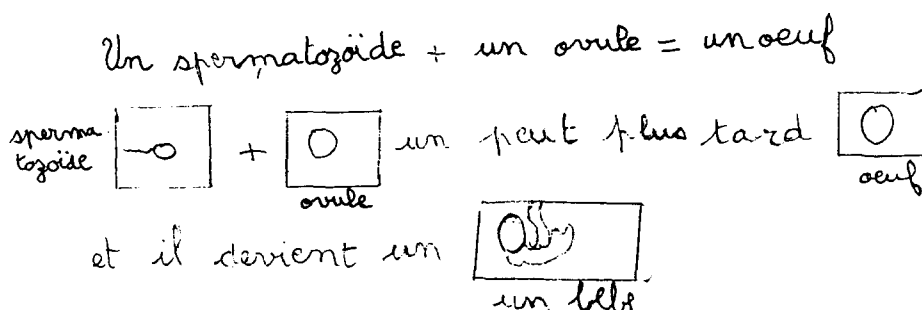 Un spermatozoïde + un ovule = un oeuf
sperma
tozoïde
+ un peut plus tard
ovule
oeuf
et il devient un
un bébé